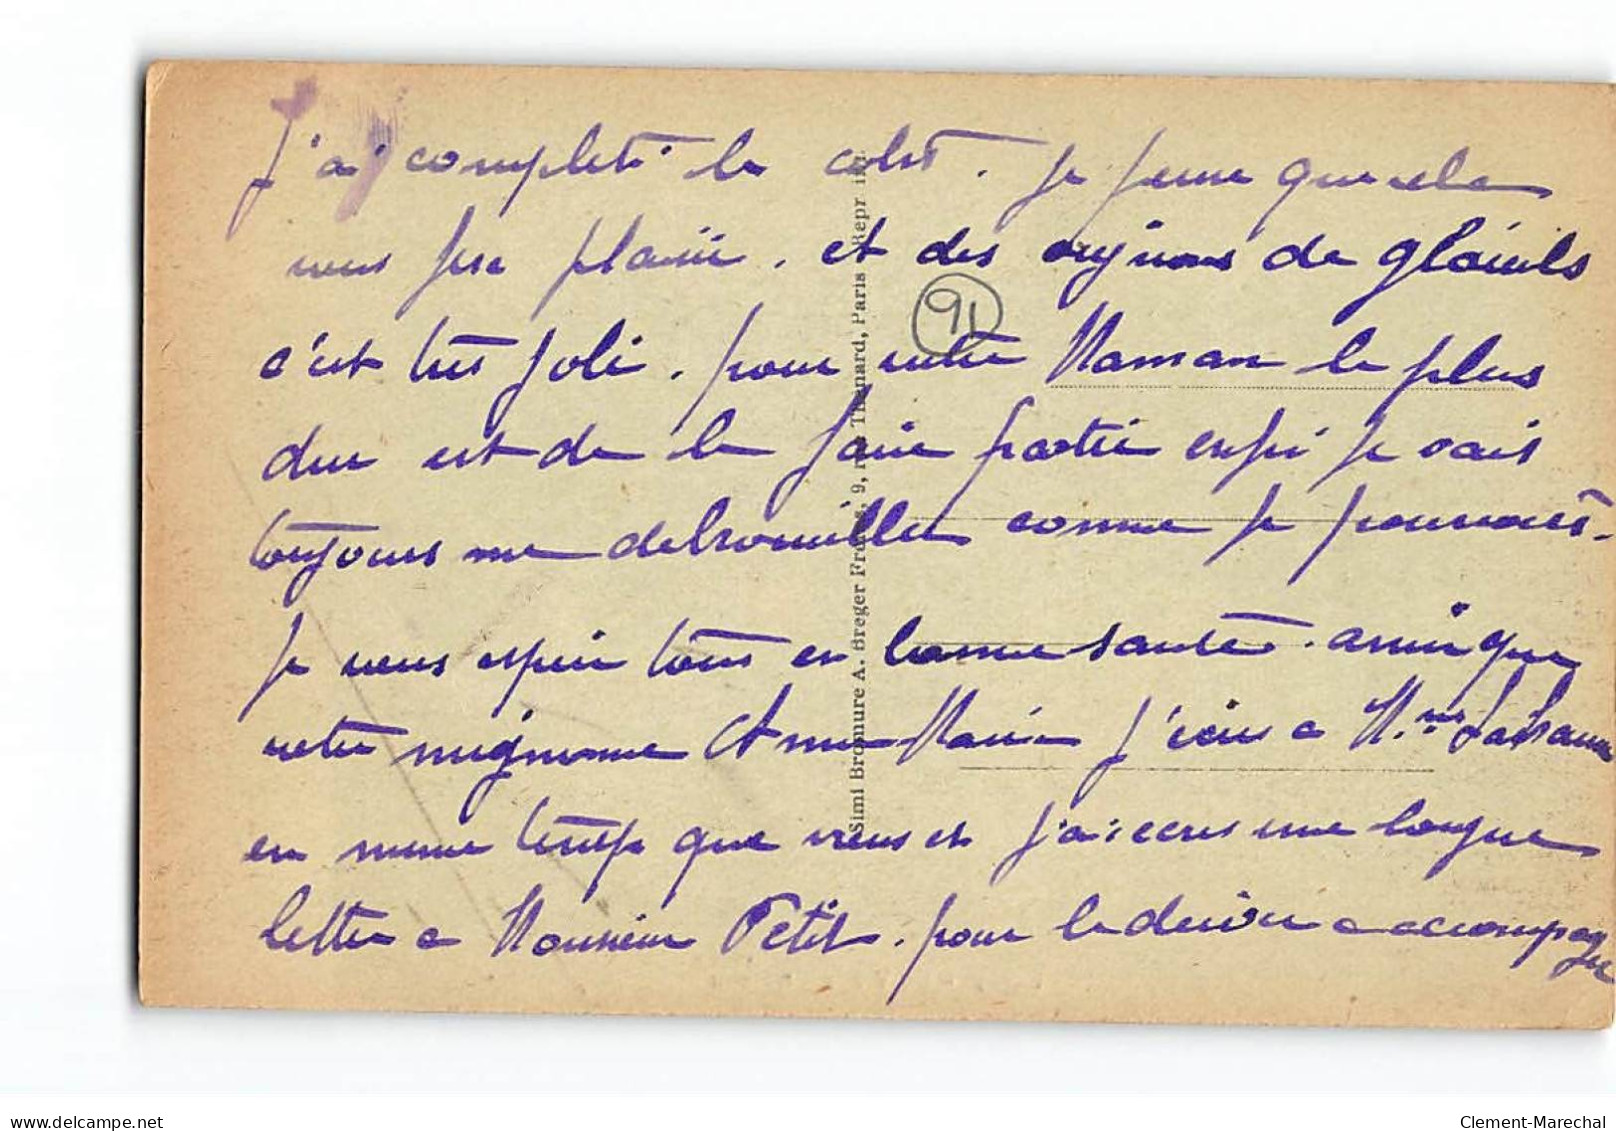 J'ai completé le colis. je pense que cela
vous fera plaisir, et des oujnons de glaieuls
91
c'est très joli. pour votre Maman le plus
dur est de le faire partir enfin je vais
toujours me debrouiller comme je pourrais.
Je vous espère tous en bonne santé. ainsi que
votre mignonne Anne Marie j'écris a Mme
en meme temps que vous et j'ai ecris une longue
lettre a Monsieur Petit. pour le decider a accompagner
Simi Bromure A. Breger Frères, 9, rue Thénard, Paris Repr int.
delcampe.net
Clement-Marechal